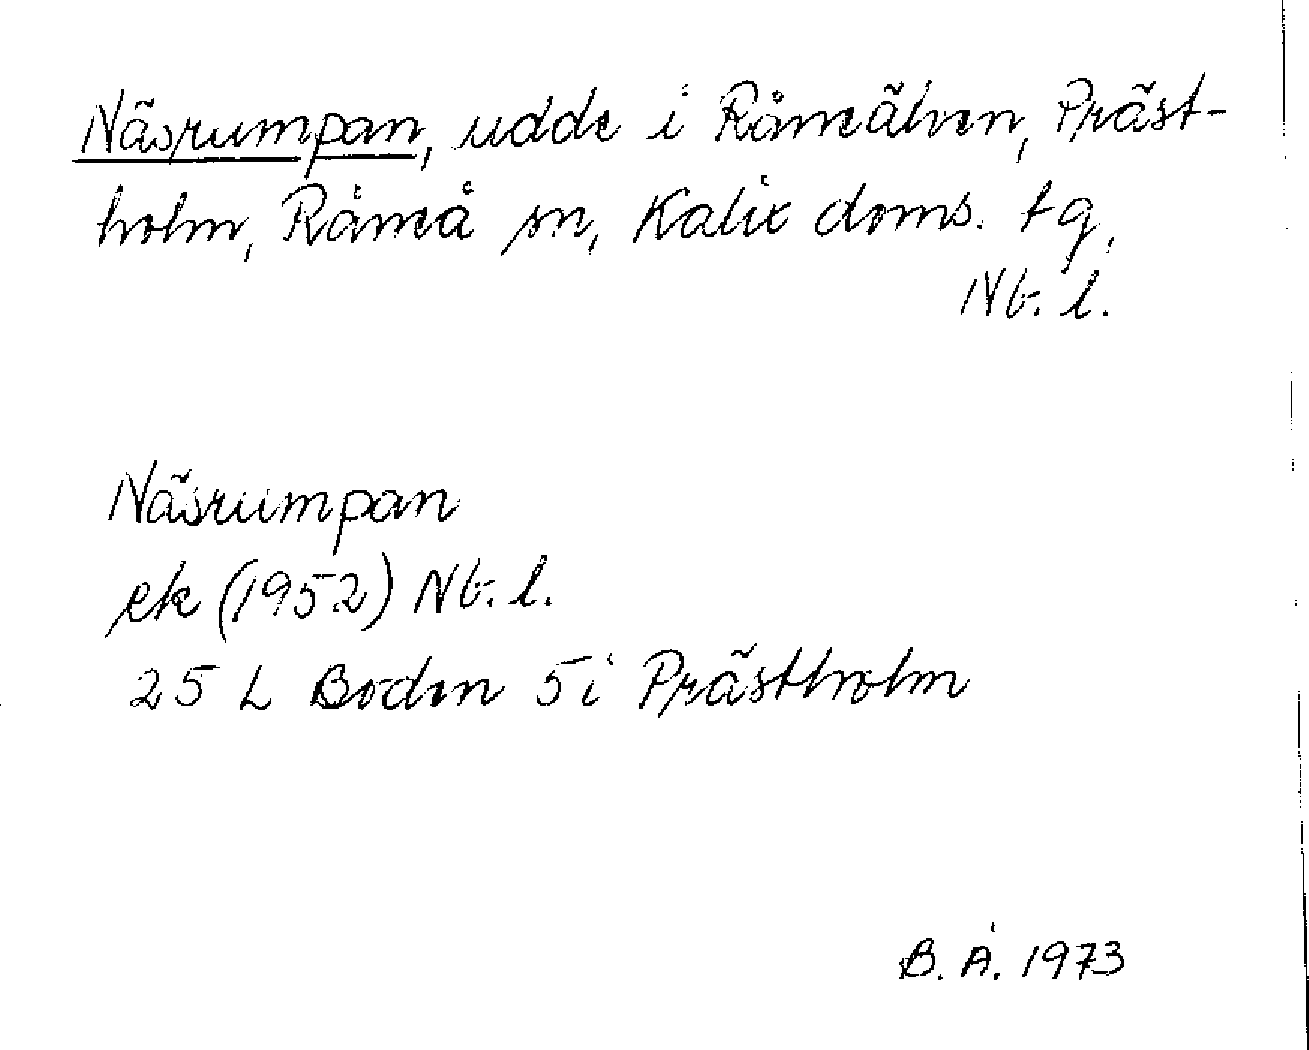 Näsrumpan, udde i Råneälven, Präst-
holm, Råneå sn, Kalix doms. tg,
Nb. l.
Näsrumpan
ek (1952) Nb. l.
25 L Boden 5 i Prästholm
B. Å. 1973